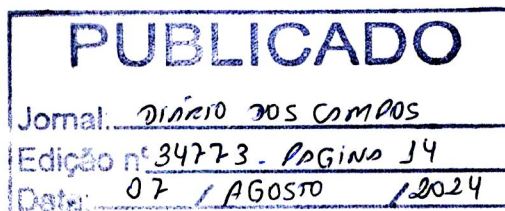 PUBLICADO
Jornal: DIÁRIO DOS CAMPOS
Edição nº 34773 - PAGINA 14
Data: 07 / AGOSTO / 2024